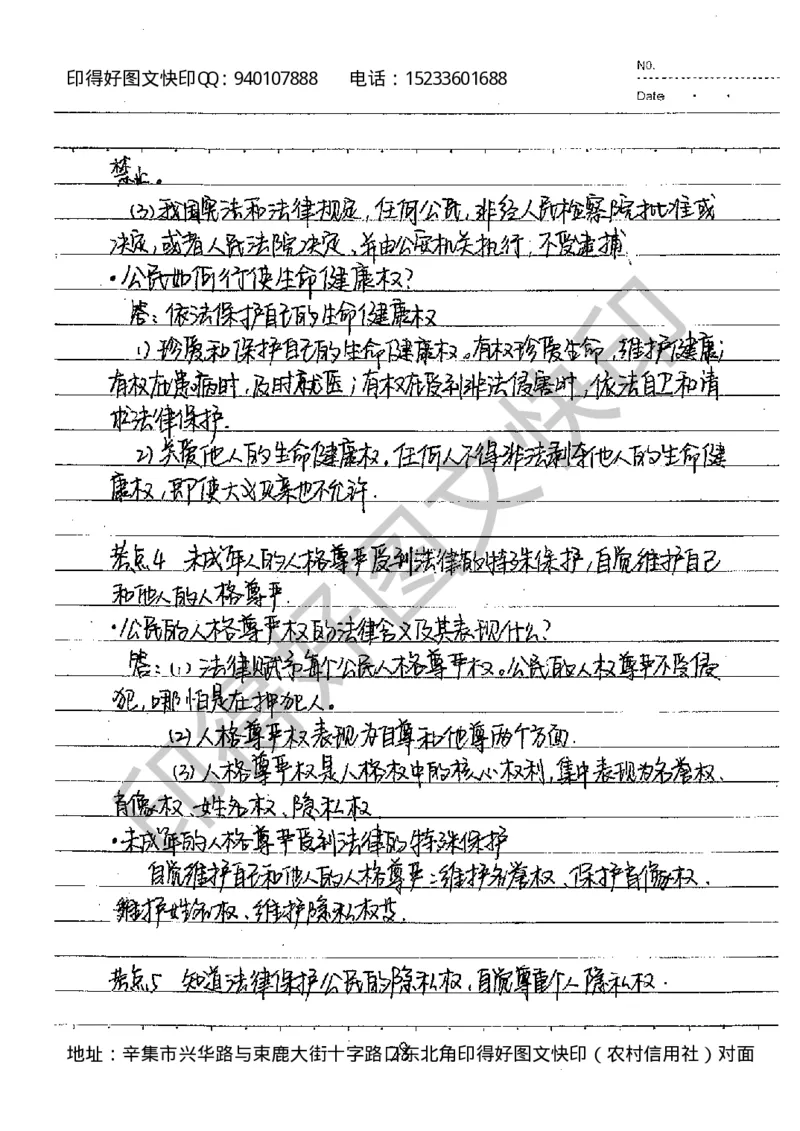 印得好图文快印QQ：940107888 电话：15233601688
NO.
Date
禁止。
(3)我国宪法和法律规定,任何公民,非经人民检察院批准或
决定,或者人民法院决定、并由公安机关执行,不受逮捕
·公民如何行使生命健康权?
答:依法保护自己的生命健康权
1)珍爱和保护自己的生命健康权。有权珍爱生命,维护健康;
有权在患病时,及时就医;有权在受到非法侵害时,依法自卫和请
求法律保护.
2)关爱他人的生命健康权,任何人不得非法剥夺他人的生命健
康权,即使大义灭亲也不允许.
考点4 未成年人的人格尊严受到法律的特殊保护,自觉维护自己
和他人的人格尊严.
·公民的人格尊严权的法律含义及其表现什么?
答:(1)法律赋予每个公民人格尊严权。公民的人权尊严不受侵
犯,哪怕是在押犯人。
(2)人格尊严权表现为自尊和他尊两个方面.
(3)人格尊严权是人格权中的核心权利,集中表现为名誉权、
肖像权、姓名权、隐私权
·未成年的人格尊严受到法律的特殊保护
自觉维护自己和他人的人格尊严:维护名誉权、保护肖像权、
维护姓名权、维护隐私权等.
考点5 知道法律保护公民的隐私权,自觉尊重个人隐私权.
地址：辛集市兴华路与束鹿大街十字路口东北角印得好图文快印（农村信用社）对面
印得好图文快印